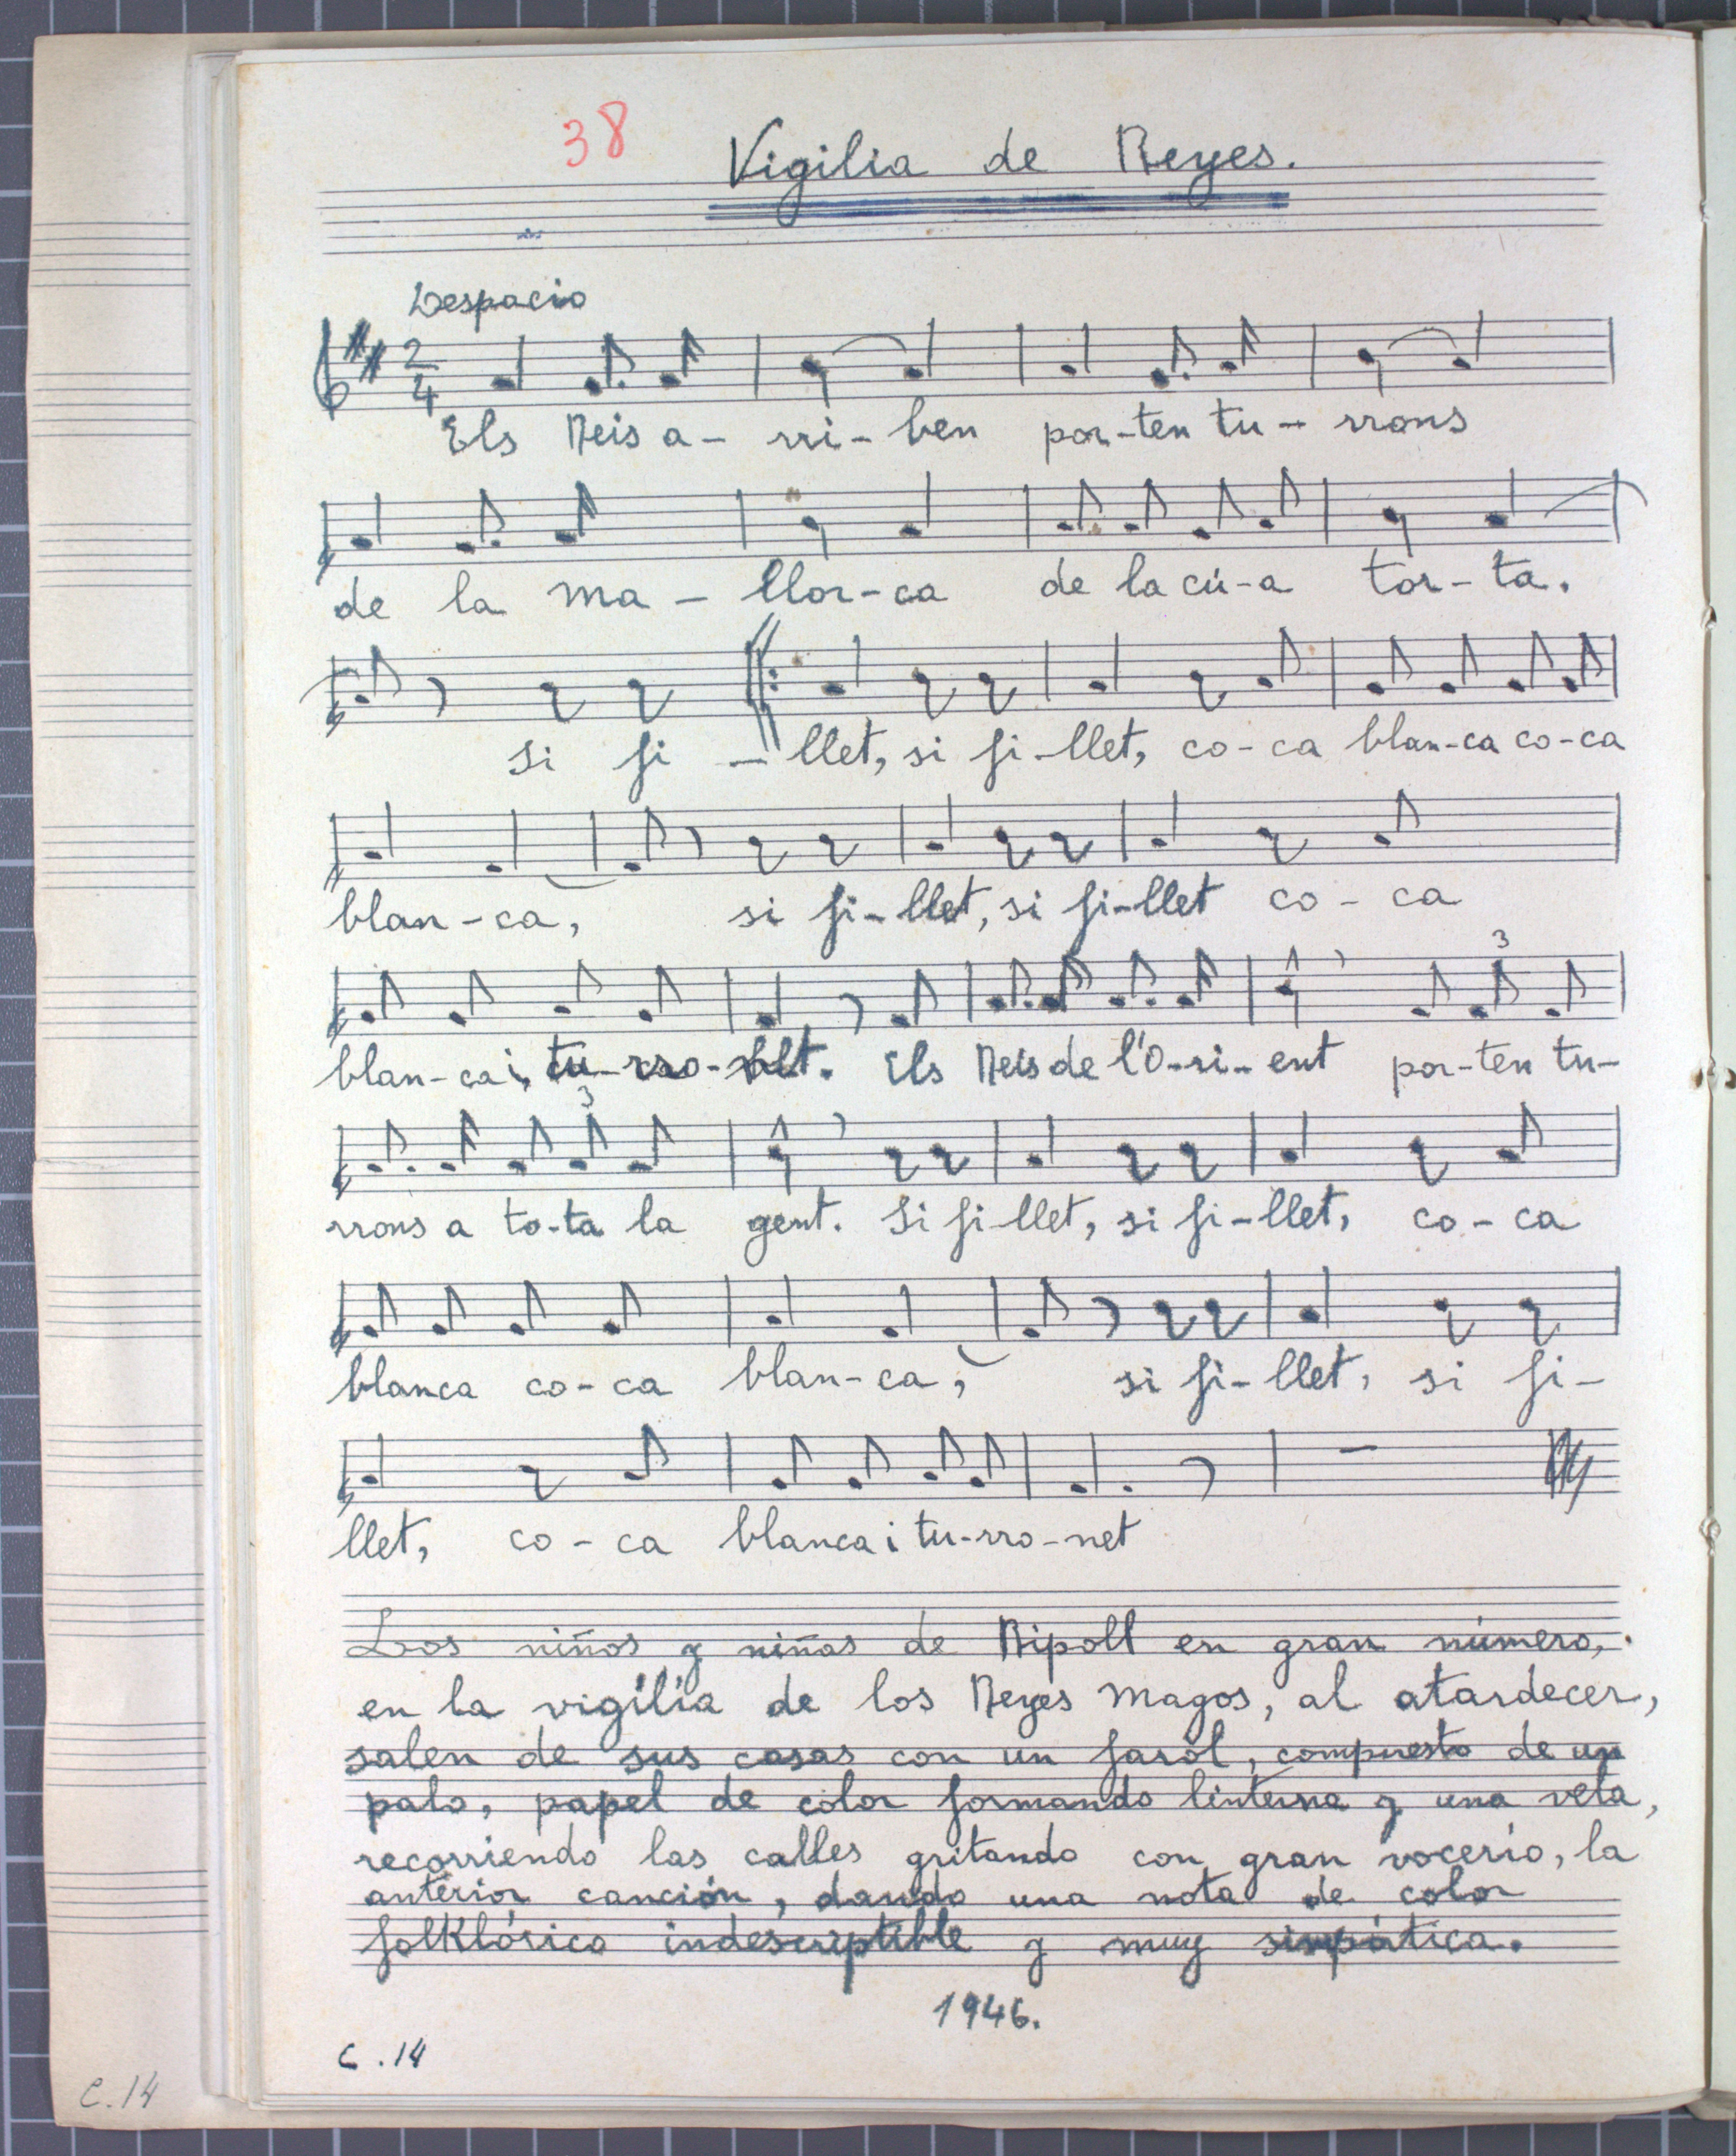 38
Vigilia de Reyes.
Despacio
2
4
Els Reis a- rri-ben por-ten tu- rrons
de la ma- llor-ca de la cú-a tor-ta.
si fi - llet, si fi-llet, co-ca blan-ca co-ca
blan-ca, si fi-llet, si fi-llet co-ca
3
blan-ca i tu-rro-net. Els Reis de l'O-ri-ent por-ten tu-
3
rrons a to-ta la gent. Si fi-llet, si fi-llet, co-ca
blanca co-ca blan-ca, si fi-llet, si fi-
llet, co-ca blanca i tu-rro-net
Los niños y niñas de Ripoll en gran número,
en la vigilia de los Reyes Magos, al atardecer,
salen de sus casas con un farol, compuesto de un
palo, papel de color formando linterna y una vela,
recorriendo las calles gritando con gran vocerío, la
anterior canción, dando una nota de color
folklórico indescriptible y muy simpática.
1946.
C.14
C.14